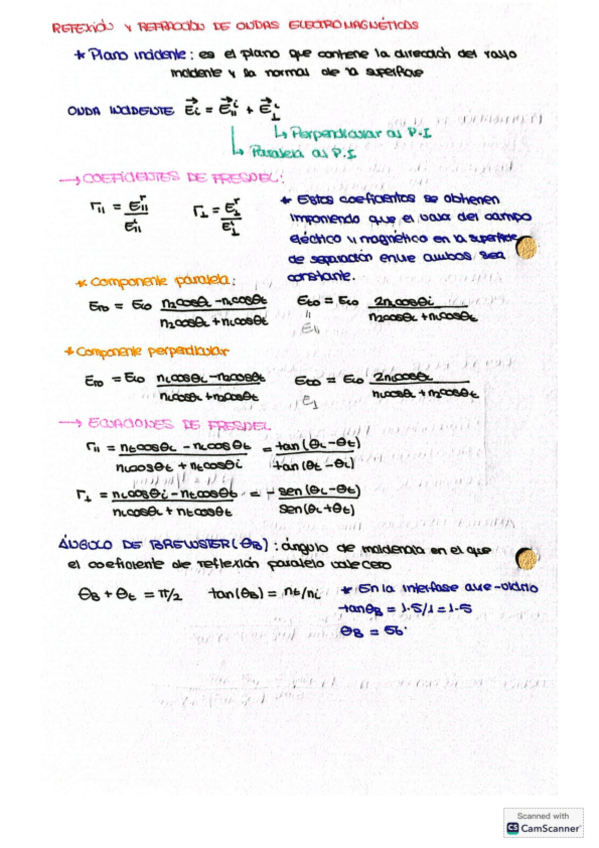 REFLEXIÓN Y REFRACCIÓN DE ONDAS ELECTROMAGNÉTICAS
* Plano incidente: es el plano que contiene la dirección del rayo
incidente y la normal de la superficie
ONDA INCIDENTE E⃗i = E⃗ⁱ∥ + E⃗ⁱ⊥
↳ Perpendicular as P.I
↳ Paralela as P.I
→ COEFICIENTES DE FRESNEL:
r∥ = Eʳ∥ / Eⁱ∥    r⊥ = Eʳ⊥ / Eⁱ⊥
* Estos coeficientes se obtienen
imponiendo que el valor del campo
eléctrico y magnético en la superficie
de separación entre ambos sea
constante.
* Componente paralela:
Er0 = Ei0 (n2cosθi - n1cosθt) / (n2cosθi + n1cosθt)    Et0 = Ei0 2n1cosθi / (n2cosθi + n1cosθt)
E∥
* Componente perpendicular
Er0 = Ei0 (n1cosθi - n2cosθt) / (n1cosθi + n2cosθt)    Et0 = Ei0 2n1cosθi / (n1cosθi + n2cosθt)
E⊥
→ ECUACIONES DE FRESNEL
r∥ = (nt cosθi - ni cosθt) / (ni cosθt + nt cosθi) = tan(θi - θt) / tan(θt - θi)
r⊥ = (ni cosθi - nt cosθt) / (ni cosθi + nt cosθt) = - sen(θi - θt) / sen(θi + θt)
ÁNGULO DE BREWSTER (θB): ángulo de incidencia en el que
el coeficiente de reflexión paralelo vale cero
θB + θt = π/2    tan(θB) = nt/ni    * En la interfase aire-vidrio
tanθB = 1.5/1 = 1.5
θB = 56°
Scanned with
CS CamScanner